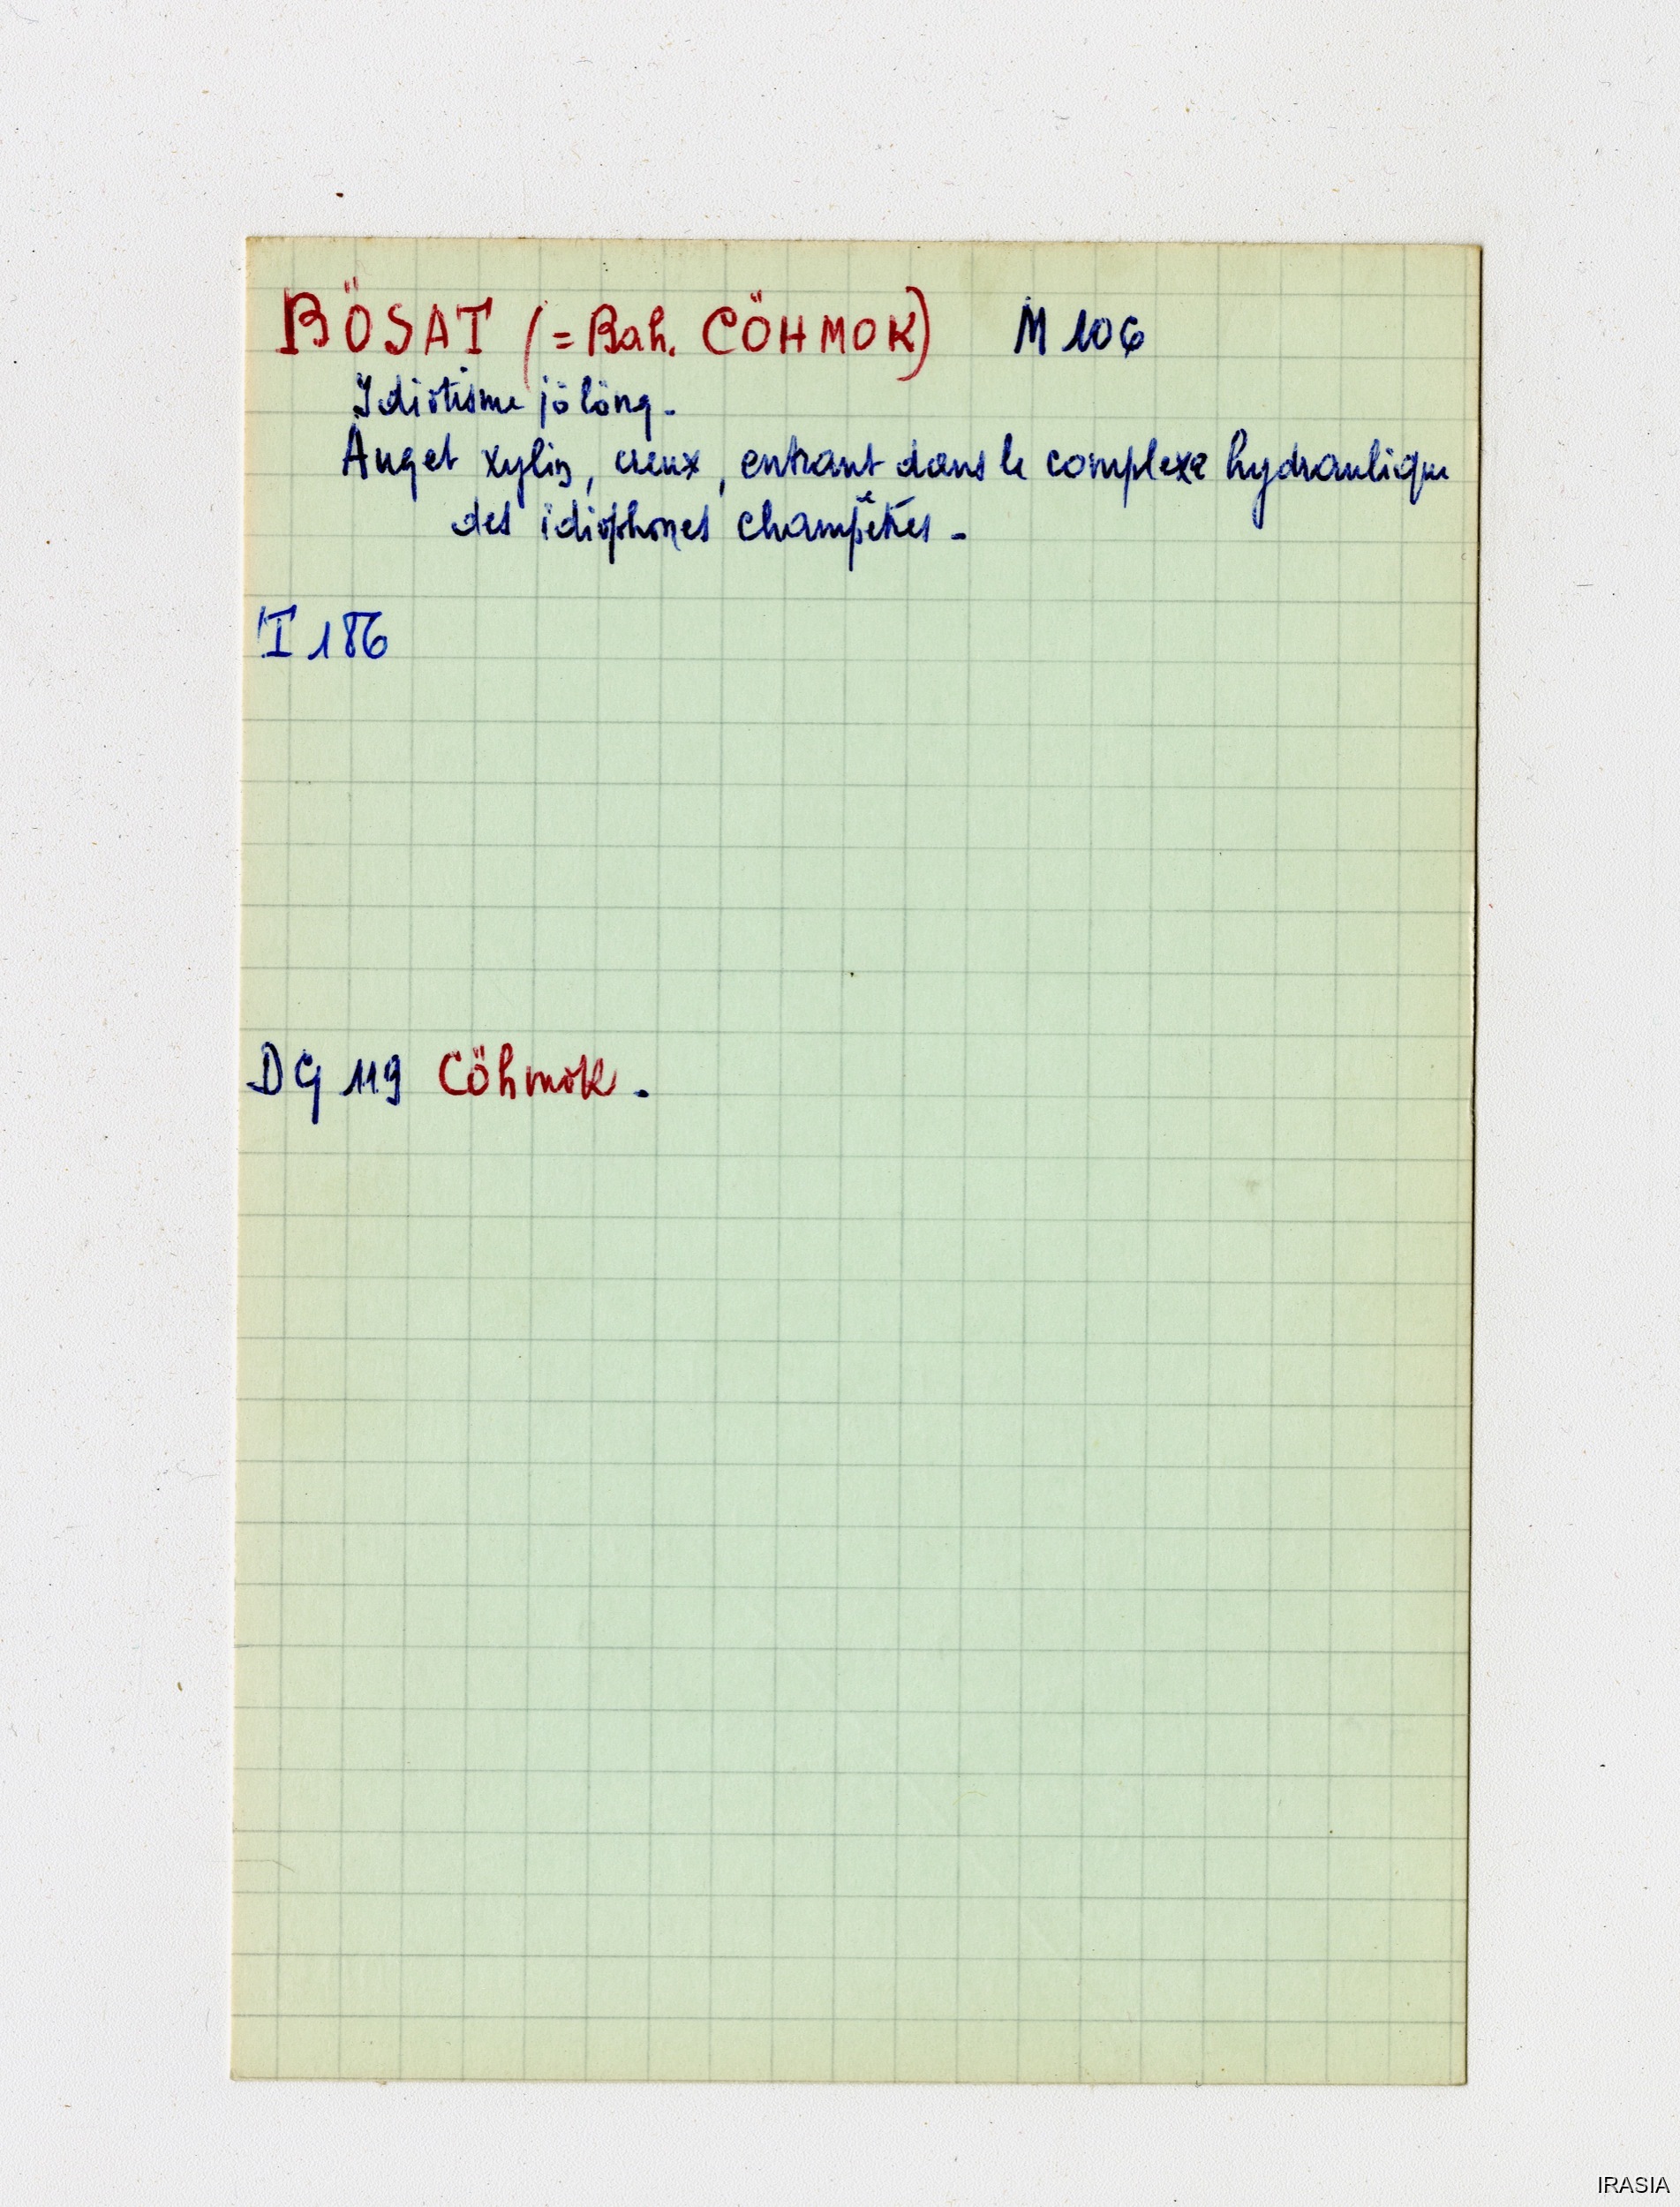 BÖSAT (= Bah. CÖHMOK) M 106
Idiotisme jölöng.
Auget xylin, creux, entrant dans le complexe hydraulique
des idiophones champêtres.
I 186
DG 119 Cöhmok.
IRASIA